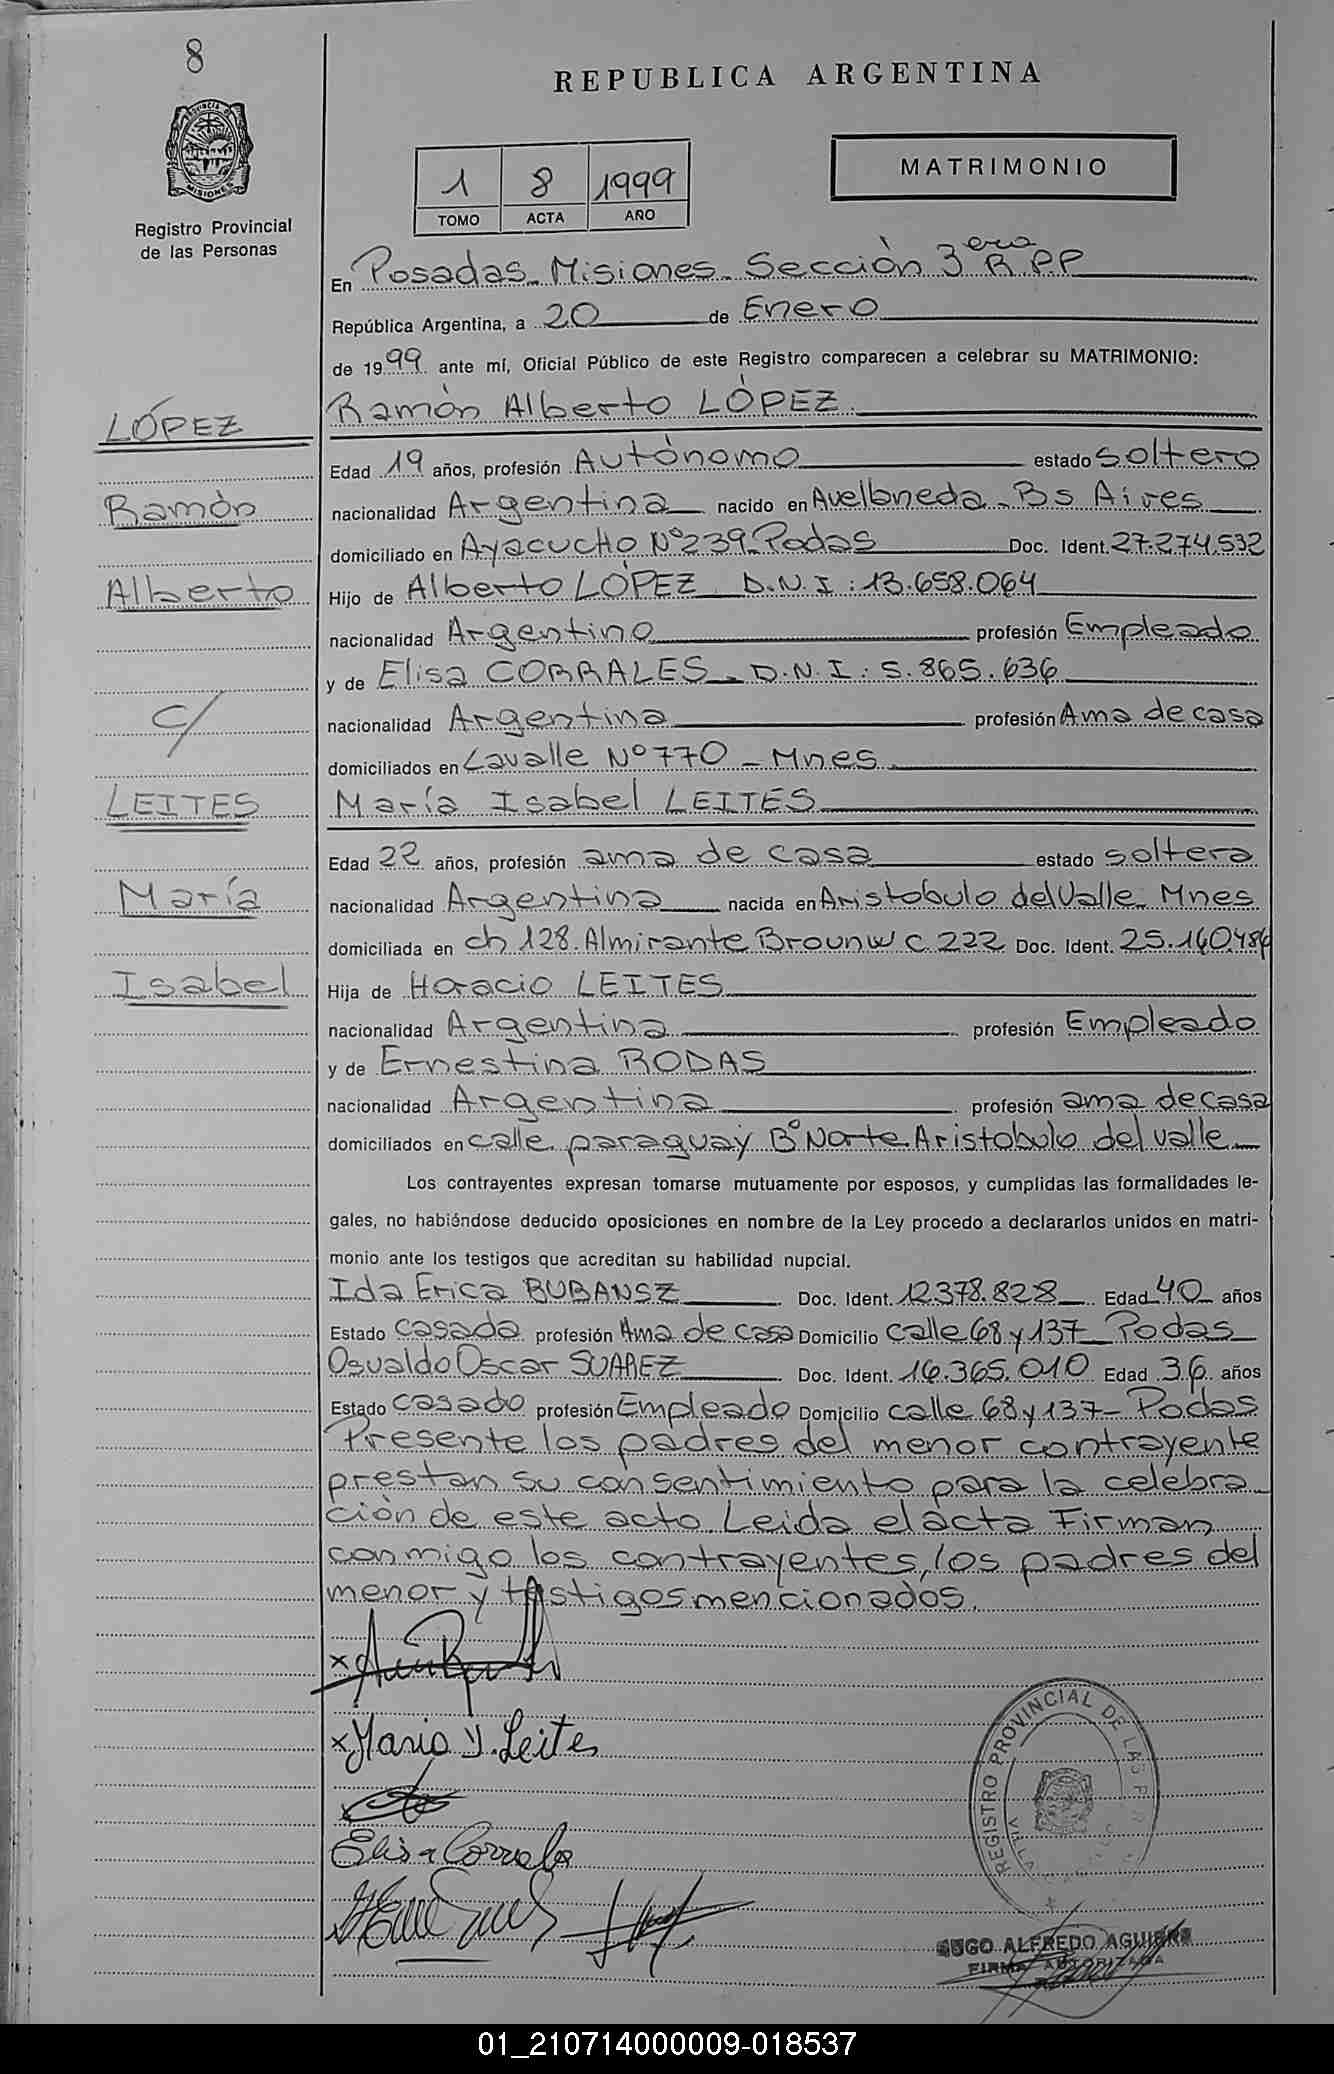 8
REPUBLICA ARGENTINA
PROVINCIA DE MISIONES
Registro Provincial
de las Personas
1 8 1999
TOMO ACTA AÑO
MATRIMONIO
En Posadas_Misiones_Sección 3era R.P.P
República Argentina, a 20 de Enero
de 1999 ante mí, Oficial Público de este Registro comparecen a celebrar su MATRIMONIO:
LÓPEZ
Ramón Alberto LÓPEZ.
Edad 19 años, profesión Autónomo estado soltero
Ramón
nacionalidad Argentina nacido en Avellaneda_Bs Aires
domiciliado en Ayacucho Nº239_Podas Doc. Ident. 27.274.532
Alberto
Hijo de Alberto LÓPEZ D.N.I: 13.658.064
nacionalidad Argentino profesión Empleado
y de Elisa CORRALES_D.N.I: 5.865.636
c/
nacionalidad Argentina profesión Ama de casa
domiciliados en Lavalle Nº770_Mnes
LEITES
María Isabel LEITES
Edad 22 años, profesión ama de casa estado soltera
María
nacionalidad Argentina nacida en Aristobulo del Valle_Mnes
domiciliada en ch 128. Almirante Brounw c 222 Doc. Ident. 25.160.484
Isabel
Hija de Horacio LEITES
nacionalidad Argentina profesión Empleado
y de Ernestina RODAS
nacionalidad Argentina profesión ama de casa
domiciliados en calle paraguay Bº Norte Aristobulo del valle
Los contrayentes expresan tomarse mutuamente por esposos, y cumplidas las formalidades le-
gales, no habiéndose deducido oposiciones en nombre de la Ley procedo a declararlos unidos en matri-
monio ante los testigos que acreditan su habilidad nupcial.
Ida Erica BUBANSZ Doc. Ident. 12.378.828 Edad 40 años
Estado casada profesión Ama de casa Domicilio calle 68 y 137_Podas
Osvaldo Oscar SUAREZ Doc. Ident. 16.365.010 Edad 36 años
Estado casado profesión Empleado Domicilio calle 68 y 137_Podas
Presente los padres del menor contrayente
prestan su consentimiento para la celebra
ción de este acto. Leida el acta Firman
conmigo los contrayentes, los padres del
menor y testigos mencionados.
x
x Maria Y. Leites
x
Elisa Corrales
REGISTRO PROVINCIAL DE LAS
HUGO ALFREDO AGUIRRE
FIRMA AUTORIZADA
01_210714000009-018537